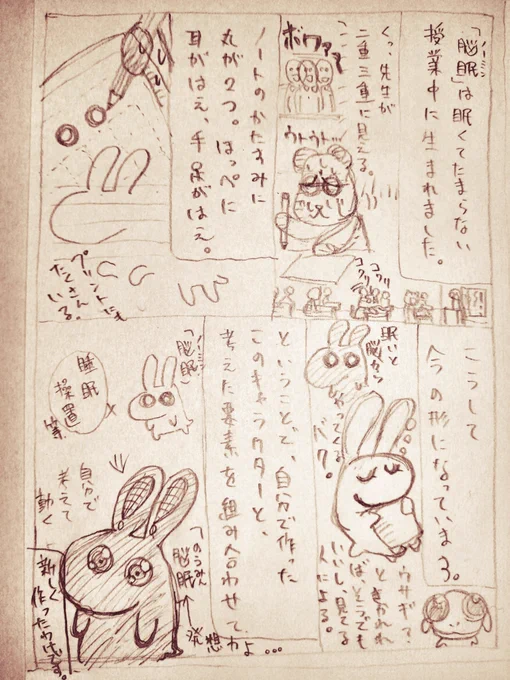 「脳眠」は眠くてたまらない
ノーミン
授業中に生まれました。
くっ、先生が
二重三重に見える。
ボワァァ
ウトウト…
コクリ
コクリ
ノートのかたすみに
丸が2つ。ほっぺに
耳がはえ、手足がはえ。
プリントにも
たくさん
いる。
こうして
今の形になっていまふ。
眠いと
脳から
やってくる
ウサギ?
ときかれれ
ばどことでも
いいし、見てる
人による。
ということで、自分で作った
このキャラクターと、
考えた要素を組み合わせて
「脳眠」
ノーミン
×
睡眠
操置
等
自分で
考えて
動く
「のうみん
脳眠」
↑
発想
かよ…
新しく
作ったわけです。